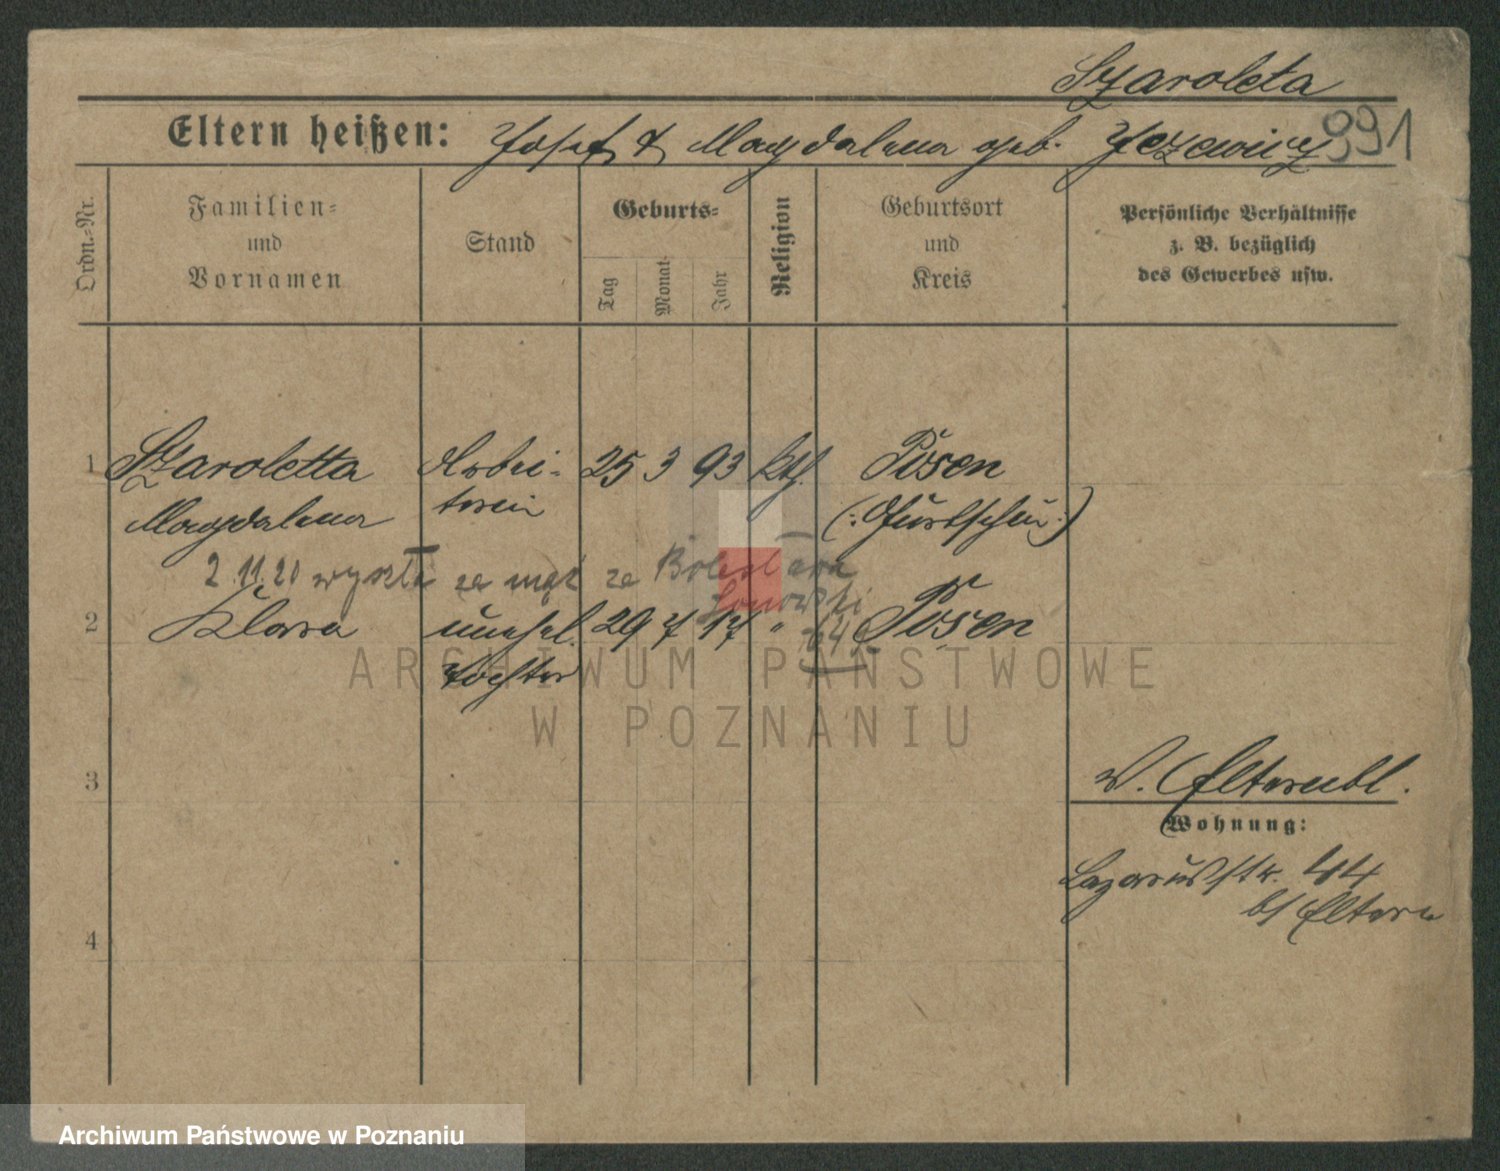 Szaroleta
Eltern heißen: Josef & Magdalena geb. Jezewicz
991
Ordn.-Nr.
Familien-
und
Vornamen
Stand
Geburts-
Tag
Monat-
Jahr
Religion
Geburtsort
und
Kreis
Persönliche Verhältnisse
z. B. bezüglich
des Gewerbes usw.
1 Szaroletta Arbei- 25 3 93 kth. Posen
Magdalena terin (: Gurtschin :)
2.11.20 wyszła za mąż za Bolesława
2 Klara unehel. 29 7 17 " Posen
Tochter
ARCHIWUM PAŃSTWOWE
W POZNANIU
3
w. Elternbl.
Wohnung:
Lazarusstr. 44
b/ Eltern
4
Archiwum Państwowe w Poznaniu